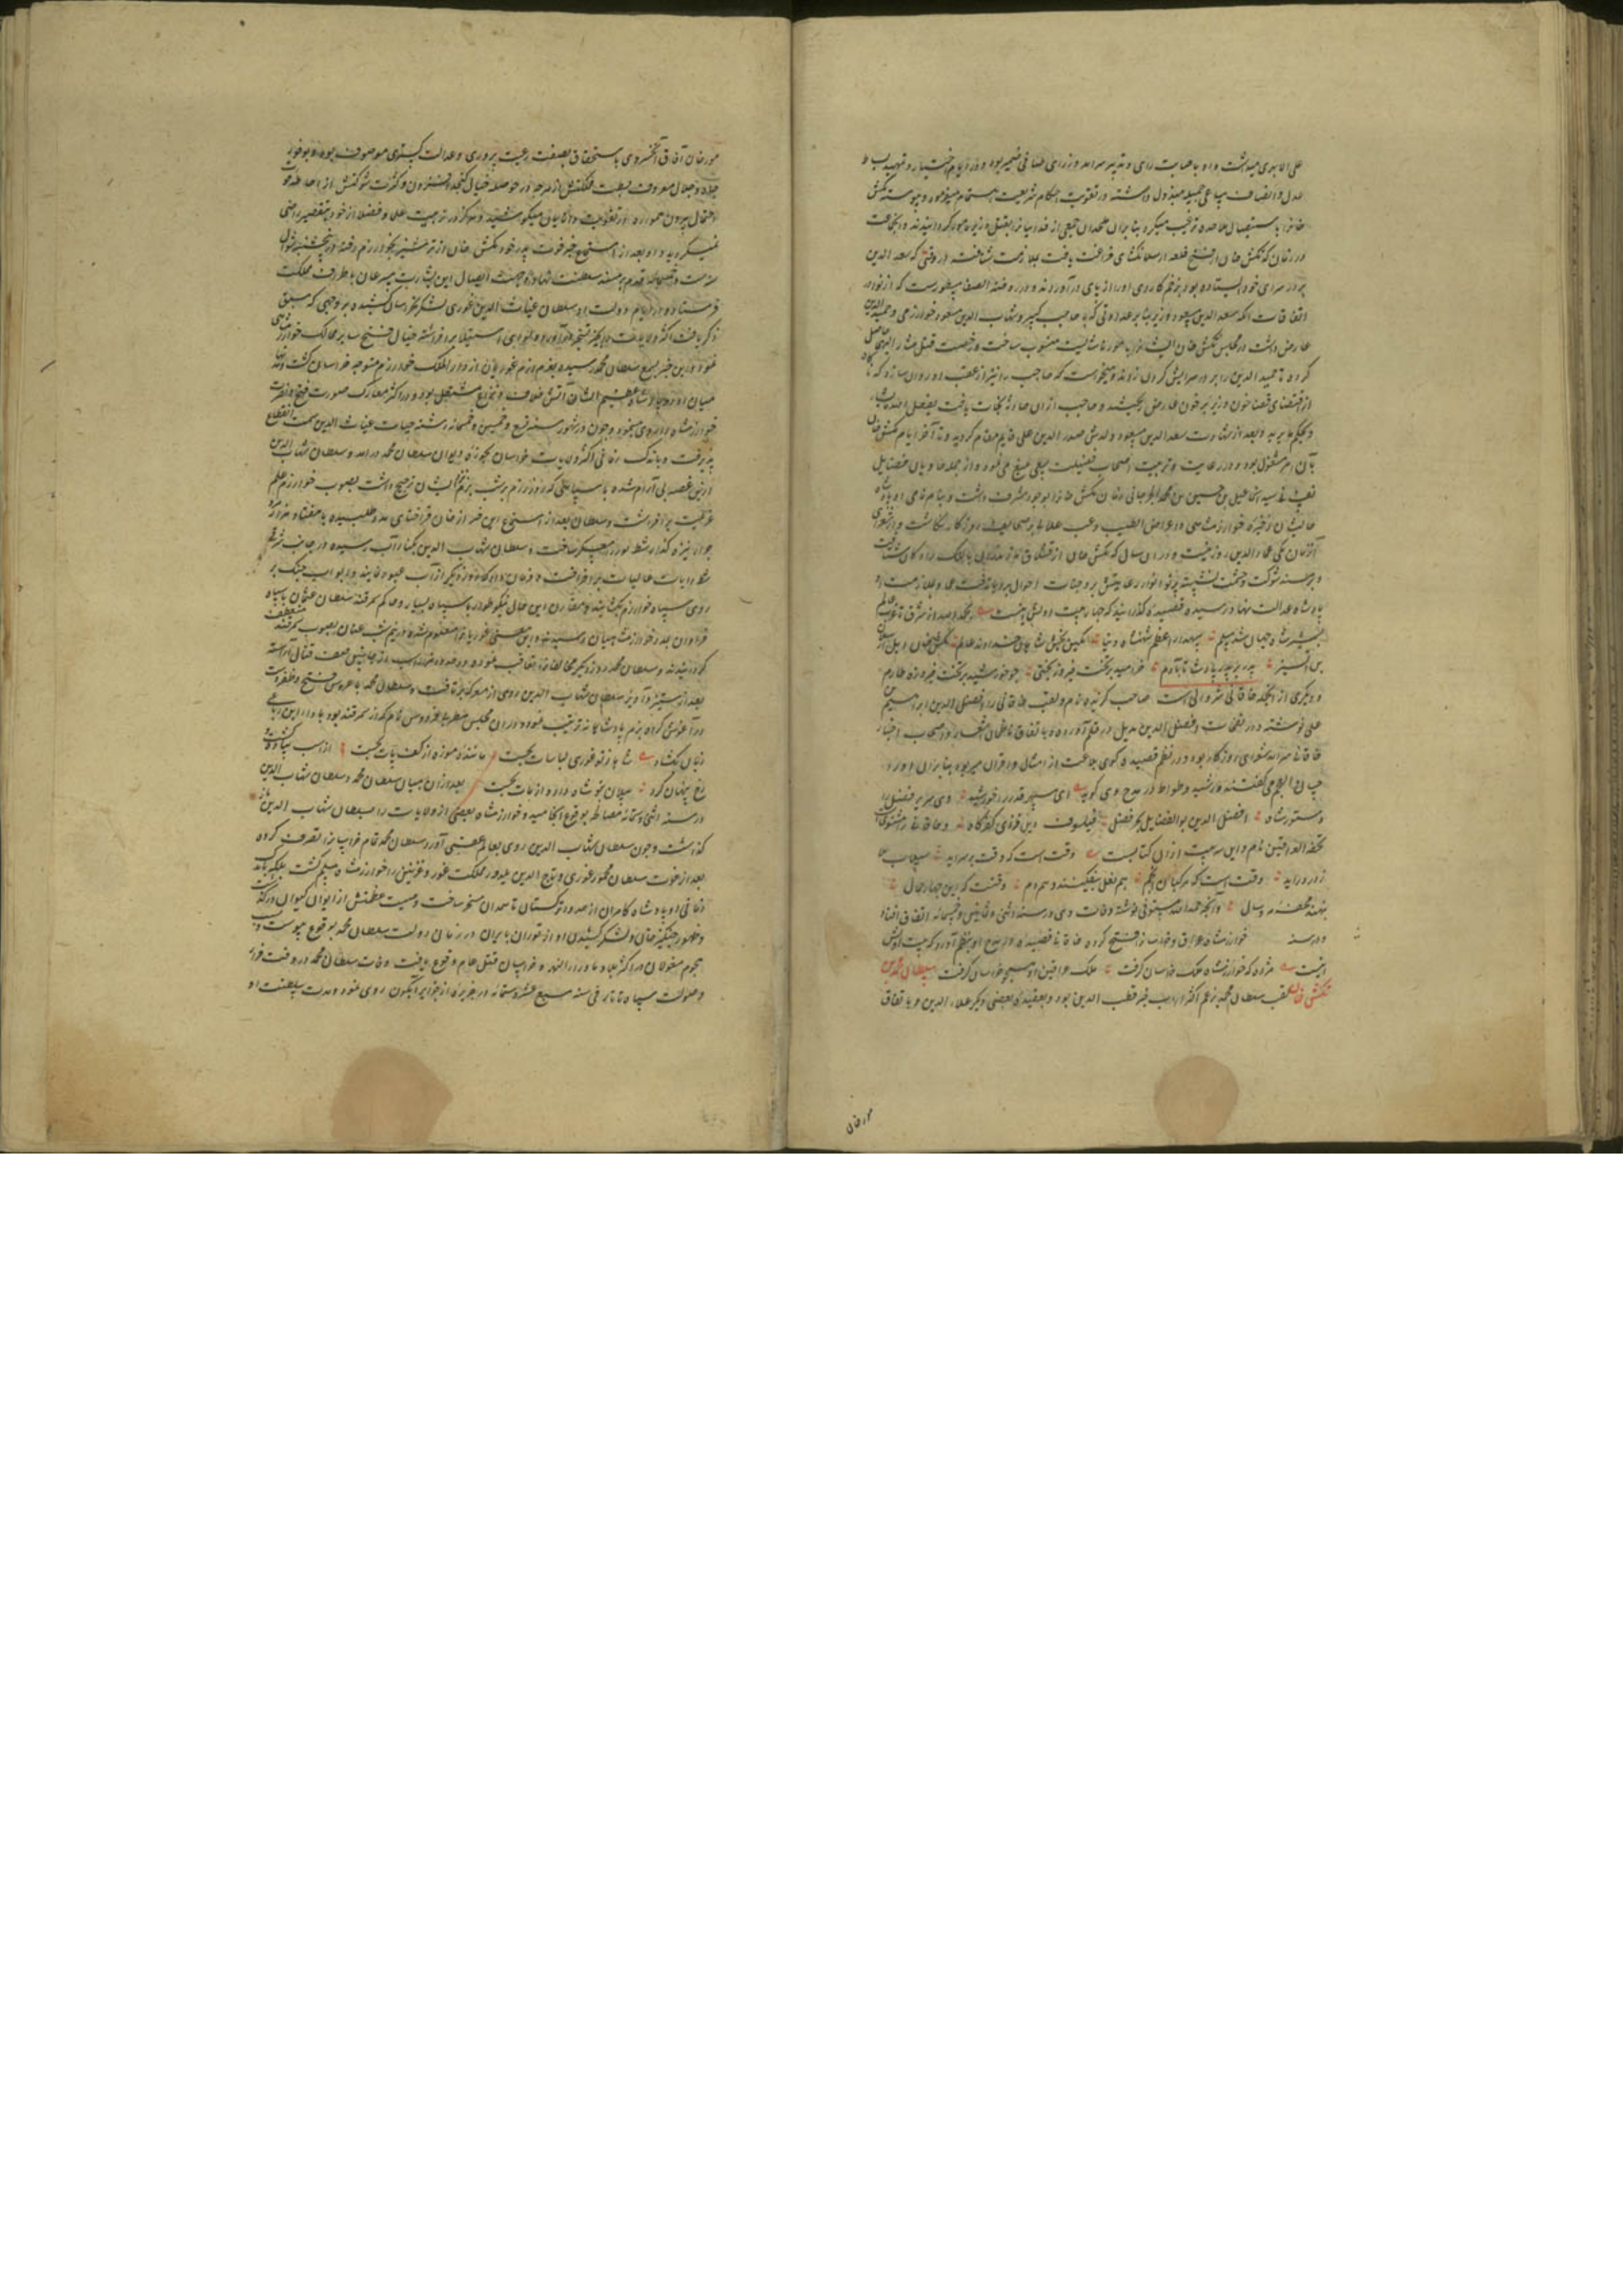 علی الابری میداشت و او باصابت رای و تدبیر سرآمد وزرای صافی ضمیر بود و در ایام اختیار در تمهید بساط
عدل و انصاف مساعی جمیله مبذول داشته در تقویت احکام شریعت اهتمام میفرمود و پیوسته تکش
خانرا باستیصال ملاحده ترغیب میکرد بنابران ملحدان جمعی از فدائیانرا بقتل وزیر مامور گردانیدند و آنجماعت
در زمان که تکش خان از فتح قلعه ارسلانکشای فراغت یافت بملازمت شتافته در وقتی که سعد الدین
بر در سرای خود ایستاده بود بزخم کاردی او را از پای درآوردند و در روضة الصفا مسطورست که از نوادر
اتفاقات آنکه سعد الدین مسعود وزیر بنابر عداوتی که با حاجب کبیر شهاب الدین مسعود خوارزمی و حمید الدین
عارض داشت در مجلس تکش خان ایشانرا بامور ناشایست منسوب ساخت و رخصت قتل مشار الیهما حاصل
کرده تا حمید الدین را بر در سرایش گردن زدند و میخواست که حاجب را نیز از عقب او روان سازد که ناگاه
از اقتضای قضا خون وزیر بر خون عارض ریختند و حاجب ازان حادثه نجات یافت یفعل الله ما یشاء
و یحکم ما یرید و بعد از شهادت سعد الدین مسعود ولدش صدر الدین علی قایم مقام گردید و تا آخر ایام تکش خان
بآن امر مشغول بود و در رعایت و تربیت اصحاب فضیلت سعی بلیغ می‌نمود و از جمله حاویان فضایل
نفسانی سید اسماعیل بن حسین بن محمد الجرجانی زمان تکش خانرا بوجود مشرف داشت و بنام نامی او پادشاه
عالیشان ذخیره خوارزمشاهی و اغراض الطیب و خف علائی بر صحایف روزگار نگاشت و از شعرای
آنزمان یکی عماد الدین زوزنیست و در آن سال که تکش خان از قشلاق مازندران بالنگ رادکان شتافت
و بر مسند شوکت و حشمت نشسته پرتو انوار رعایتش بر وجنات احوال برو یافت عماد بملازمت آن
پادشاه عدالت نهاد رسیده قصیده گذرانید که چهار بیت اولش اینست بحمد الله از شرق تا غرب عالم
بشمشیر شاه جهان شد مسلم سپهدار اعظم شهنشاه دنیا نگین بخش شاهان خداوند عالم تکش خان ایل ارسلان
بن اتسز پدر بر پدر پادشا تا بآدم خرامید بر تخت فیروزبختی چو خورشید بر تخت فیروزه طارم
و دیگری از آنجمله خاقانی شروانی است صاحب گزیده نام و لقب خاقانی را افضل الدین ابراهیم بن
علی نوشته و در نفحات افضل الدین بدیل در قلم آورده و باتفاق ناظمان اشعار و اصحاب اخبار
خاقانی سرآمد شعرای روزگار بوده و در نظم قصیده گوی بلاغت از امثال و اقران میربوده بنابران او را
حسان العجم می‌گفتند و رشید وطواط در مدح وی گوید ای سپهر قدر را خورشید وی سریر فضل را
دستور شاه افضل الدین بو الفضایل بحر فضل فیلسوف دین فزای کفر کاه و خاقانی را مثنوی است
تحفة العراقین نام و این سه بیت ازان کتابست وقت است که وقت برسراید سیلاب عدم
ز در دراید وقت است که مرکبان انجم هم نعل بیفکنند و هم دم وقتست که این چهار حمال
بنهند محفه مه و سال و آنچه حمد الله مستوفی نوشته وفات وی در سنه اثنی و ثمانین و خمسمائه اتفاق افتاد
و در سنه خوارزمشاه عراق و خراسانرا فتح کرده خاقانی قصیده در مدح او بنظم آورد که بیت اولش
اینست مژده که خوارزمشاه ملک خراسان گرفت ملک عراقین را و سپه خراسان گرفت سلطان محمد بن
تکش خان لقب سلطان محمد بزعم اکثر ارباب خبر قطب الدین بود و بعقیده بعضی دیگر علاء الدین و باتفاق
مورخان
مورخان آفاق آنخسرو باستحقاق بصفت رعیت پروری و عدالت گستری موصوف بود و بوفور
جاه و جلال معروف بسطت ملکتش از هرچه در حوصله خیال گنجد افزون و کثرت شوکتش از احاطه حد
احتمال بیرون همواره در تقویت دانایان میکوشید و هرگز در تربیت علما و فضلا از خود بتقصیر راضی
نمیگردید و او بعد از استماع خبر فوت پدر خود تکش خان از ترشیز بخوارزم رفته در پنجشنبه شوال
سنه ست و تسعین قدم بر مسند سلطنت نهاد و جهت ایصال این بشارت مسرعان باطراف مملکت
فرستاد و در ایام دولت او سلطان غیاث الدین غوری لشکر بخراسان کشیده بر وجهی که سبق
ذکر یافت اکثر ولایات را بحیز تسخیر درآورد و لوای استیلا برافراشته خیال فتح سایر ممالک خوارزمشاهی
نمود و این خبر بسمع سلطان محمد رسیده بعزم رزم غوریان از دار الملک خوارزم متوجه خراسان گشت و مدتها
میان آن دو پادشاه عظیم الشان آتش خلاف و نزاع مشتعل بود و در اکثر معارک صورت فتح و نصرت
خوارزمشاه را روی مینمود و چون در شهور سنه تسع و تسعین و خمسمائه رشته حیات غیاث الدین سمت انقطاع
پذیرفت و باندک زمانی اکثر ولایات خراسان بحوزه دیوان سلطان محمد درآمد و سلطان شهاب الدین
ازین غصه بی‌آرام شده با سپاهی که روز رزم بر شب بزم ایشان ترجیح داشت بصوب خوارزم علم
عزیمت برافراشت و سلطان بعد از استماع این خبر از خان قراختای مدد طلبیده با هفتاد هزار مرد
جرار نیزه گذار شط نوزور معسکر ساخت و سلطان شهاب الدین بکنار آب رسیده در جانب شرقی
شط رایات عالیات برافراخت و فرمان داد که روز دیگر از آب عبور نمایند و ابواب جنگ بر
روی سپاه خوارزم بکشایند و مقارن این حال تاینکو طراز با سپاه بسیار و حاکم سمرقند سلطان عثمان با سپاه
فراوان بمدد خوارزمشاهیان رسیدند و این معنی غوریانرا معلوم شده در نیم شب عنان بصوب گریز منعطف
گردانیدند و سلطان محمد روز دیگر مخالفانرا تعاقب نموده در حدود هزار اسب از جانبین صف قتال آراسته
بعد از ستیز و آویز سلطان شهاب الدین روی از معرکه برتافت و سلطان محمد با عروس فتح و ظفر دست
در آغوش کرده بزم پادشاهانه ترتیب نمود و در آن مجلس مطربه فردوس نام که از سمرقند بود بادای این رباعی
زبان بکشاد شاها ز تو غوری بلباسات بجست مانند موزه از کف پات بجست از اسب پیاده گشت و
رخ پنهان کرد پیلان بتو شاه داد و از مات بجست بعد ازان میان سلطان محمد و سلطان شهاب الدین
در سنه اثنی و ستمائه مصالحه بوقوع انجامید و خوارزمشاه بعضی از ولایات را بسلطان شهاب الدین باز
گذاشت و چون سلطان شهاب الدین روی بعالم عقبی آورد سلطان محمد تمام خراسانرا تصرف کرده
بعد از فوت سلطان محمود غوری و تاج الدین یلدوز مملکت غور و غزنین را خوارزمشاه مسلم گشت بلکه باندک
زمانی او پادشاه کامران از حدود ترکستان تا همدان مسخر ساخت و صیت عظمتش از ایوان کیوان درگذشت
و ظهور چنگیز خان و لشکر کشیدن او از توران بایران در زمان دولت سلطان محمد بوقوع پیوست و بسبب
هجوم مغولان در اکثر بلاد ماوراء النهر و خراسان قتل عام وقوع یافت وفات سلطان محمد در وقت فرار
و صولت سپاه تاتار فی سنه سبع عشر و ستمائه در جزیره از جزایر آبسکون روی نمود و مدت سلطنت او